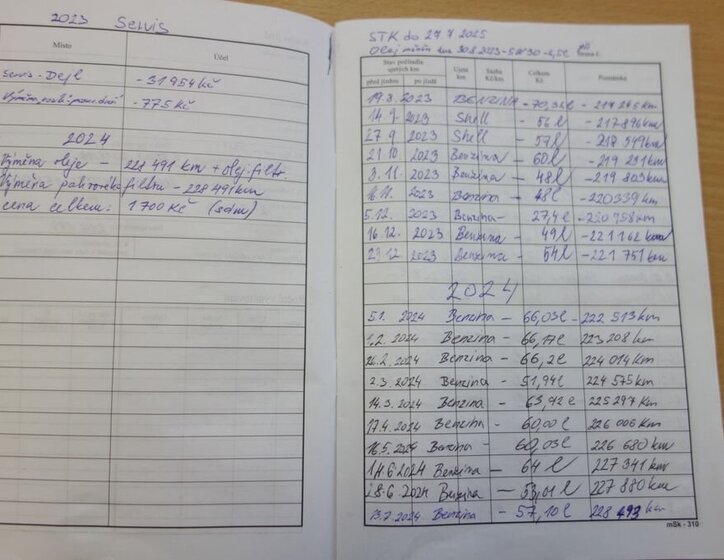 2023 Servis
Místo Účel
Servis - Dejl - 31954 Kč
Výměna - 775 Kč
2024
Výměna oleje - 228 491 km + olej. filtr.
Výměna filtru - 228 491 km
cena celkem: 1700 Kč (sám)
STK do 27.7.2025
Olej 30.8.2023 - 5W30 -
Stav počítadla ujetých km Ujeté km Sazba Kč/km Celkem Kč Poznámka
před jízdou po jízdě
19.8.2023 BENZINA - 70,31 - 217 245 km
14.9. 2023 Shell - 56 l - 217 896 km
27.9 2023 Shell - 59 l
21.10 2023 Benzina - 60 l - 219 231 km
3.11. 2023 Benzina - 48 l - 219 803 km
16.11. 2023 Benzina - 48 l - 220339 km
5.12. 2023 Benzina - 27,4 l - 220 758 km
16.12. 2023 Benzina - 49 l - 221 162 km
23.12 2023 Benzina - 54 l - 221 751 km
2024
5.1. 2024 Benzina - 66,03 l - 222 513 km
1.2. 2024 Benzina - 66,17 l 223 208 km
2024 Benzina - 66,2 l 224 014 km
2.3. 2024 Benzina - 51,94 l 224 575 km
14.3. 2024 Benzina - 63,92 l 225 297 km
17.4. 2024 Benzina - 60,00 l 226 006 km
16.5. 2024 Benzina - 60,03 l 226 680 km
14.6.2024 Benzina - 64 l 227 341 km
28.6.2024 Benzina - 53,01 l 227 880 km
13.7.2024 Benzina - 57,10 l 228 493 km
mSk - 310